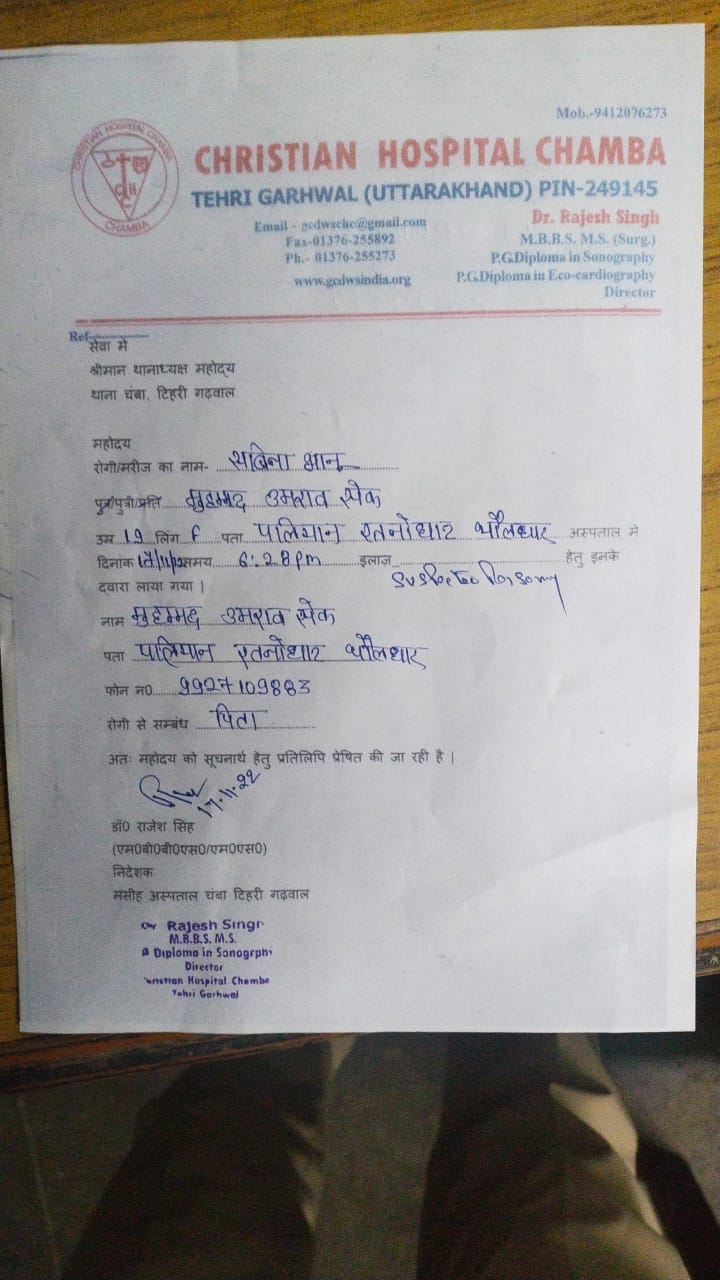 Mob.-9412076273
CHRISTIAN HOSPITAL CHAMBA
CHRISTIAN HOSPITAL CHAMBA
TEHRI GARHWAL (UTTARAKHAND) PIN-249145
Email - gcdwschc@gmail.com
Dr. Rajesh Singh
Fax-01376-255892
M.B.B.S. M.S. (Surg.)
Ph.- 01376-255273
P.G.Diploma in Sonography
www.gcdwsindia.org
P.G.Diploma in Eco-cardiography
Director
Ref-
सेवा मे
श्रीमान थानाध्यक्ष महोदय
थाना चंबा, टिहरी गढ़वाल
महोदय
रोगी/मरीज का नाम- साबिना भानू
पुत्र/पुत्री/प्रति मुहम्मद उमराव सेक
उम्र 19 लिंग F पता पालियान रतनोधार थौलधार अस्पताल मे
दिनांक समय 6:28pm इलाज हेतु इनके
suspected
दवारा लाया गया |
नाम मुहम्मद उमराव सेक
पता पालियान रतनोधार थौलधार
फोन न0 9927109883
रोगी से सम्बंध पिता
अतः महोदय को सूचनार्थ हेतु प्रतिलिपि प्रेषित की जा रही है |
17.11.22
डॉ0 राजेश सिंह
(एम0बी0बी0एस0/एम0एस0)
निदेशक
मसीह अस्पताल चंबा टिहरी गढ़वाल
Rajesh Singh
M.B.B.S. M.S.
Diploma in Sonogrphy
Director
Christian Hospital Chamba
Tehri Garhwal